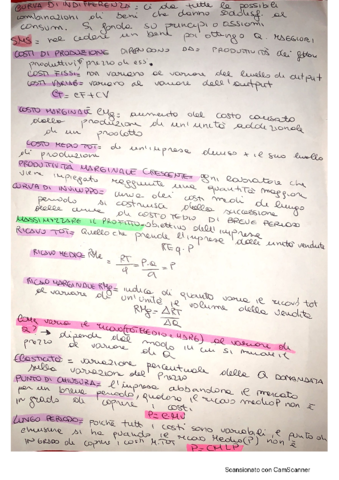 CURVA DI INDIFFERENZA: ci dà tutte le possibili
combinazioni di beni che danno soddisf. al
consum. Si fonda su principi o ASSIOMI
SMS = nel cedere un bene poi ottengo
COSTI DI PRODUZIONE DIPENDONO DAI PRODUTTIVITÀ dei fattori
produttivi, prezzo di essi.
COSTI FISSI: non variano al variare del livello di output
COSTI VARIABILI: variano al variare dell'output
CT = CF + CV
COSTO MARGINALE CMg = aumento del costo causato
dalla produzione di un'unità addizionale
di un prodotto
COSTO MEDIO TOT: di un'impresa diviso il suo livello
di produzione
PRODUTTIVITÀ MARGINALE CRESCENTE: ogni lavoratore che
viene impiegato raggiunge una quantità maggiore
CURVA DI INVILUPPO: curva dei costi medi di lungo
periodo si costruisce dalla successione
delle curve di COSTO MEDIO DI BREVE PERIODO
MASSIMIZZARE IL PROFITTO = obiettivo dell'impresa
RICAVO TOT = quello che prende l'impresa dalle unità vendute
RICAVO MEDIO RMe = RT/q = P·q/q = P
RICAVO MARGINALE RMg = indica di quanto varia il ricavo tot
al variare di un'unità il volume della vendita
RMg = ΔRT/ΔQ
Come varia il ricavo (TOT, MEDIO, MARG) al variare di
Q? → dipende dal modo in cui si muove il
prezzo al variare di Q
Elasticità = variazione percentuale della Q DOMANDATA
sulla variazione del Prezzo
PUNTO DI CHIUSURA = l'impresa abbandona il mercato
per un breve periodo, qualora il ricavo medio P non è
in grado di coprire i costi.
P = CMV
LUNGO PERIODO = poiché tutti i costi sono variabili, il punto di
chiusura si ha quando il ricavo Medio (P) non è
in grado di coprire i costi M.TOT P = CMLP
Scansionato con CamScanner